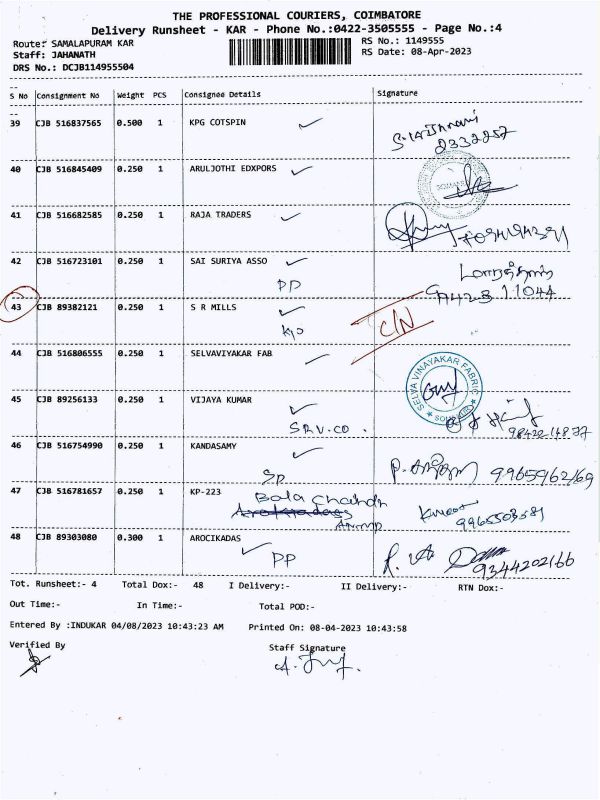 THE PROFESSIONAL COURIERS, COIMBATORE
Delivery Runsheet - KAR - Phone No.:0422-3505555 - Page No.:4
Route: SAMALAPURAM KAR
RS No.: 1149555
Staff: JAHANATH
RS Date: 08-Apr-2023
DRS No.: DCJB114955504
S No Consignment No Weight PCS Consignee Details Signature
39 CJB 516837565 0.500 1 KPG COTSPIN
2332257
40 CJB 516845409 0.250 1 ARULJOTHI EDXPORS
41 CJB 516682585 0.250 1 RAJA TRADERS
42 CJB 516723101 0.250 1 SAI SURIYA ASSO
PP
43 CJB 89382121 0.250 1 S R MILLS
C/N
44 CJB 516806555 0.250 1 SELVAVIYAKAR FAB
SELVA VINAYAKAR FABRIC
45 CJB 89256133 0.250 1 VIJAYA KUMAR
SRV.CO.
46 CJB 516754990 0.250 1 KANDASAMY
SP
9965962169
47 CJB 516781657 0.250 1 KP-223
Bala
9965503581
48 CJB 89303080 0.300 1 AROCIKADAS
PP
9344202166
Tot. Runsheet:- 4 Total Dox:- 48 I Delivery:- II Delivery:- RTN Dox:-
Out Time:- In Time:- Total POD:-
Entered By :INDUKAR 04/08/2023 10:43:23 AM Printed On: 08-04-2023 10:43:58
Verified By Staff Signature